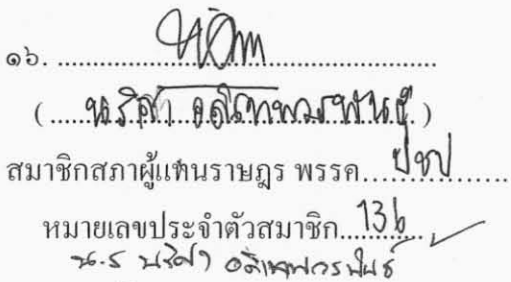 ๑๖. ....................................................
( นริศา อดิเทพวรพันธุ์ )
สมาชิกสภาผู้แทนราษฎร พรรค ปชป
หมายเลขประจำตัวสมาชิก 136
น.ส นริศา อดิเทพวรพันธ์